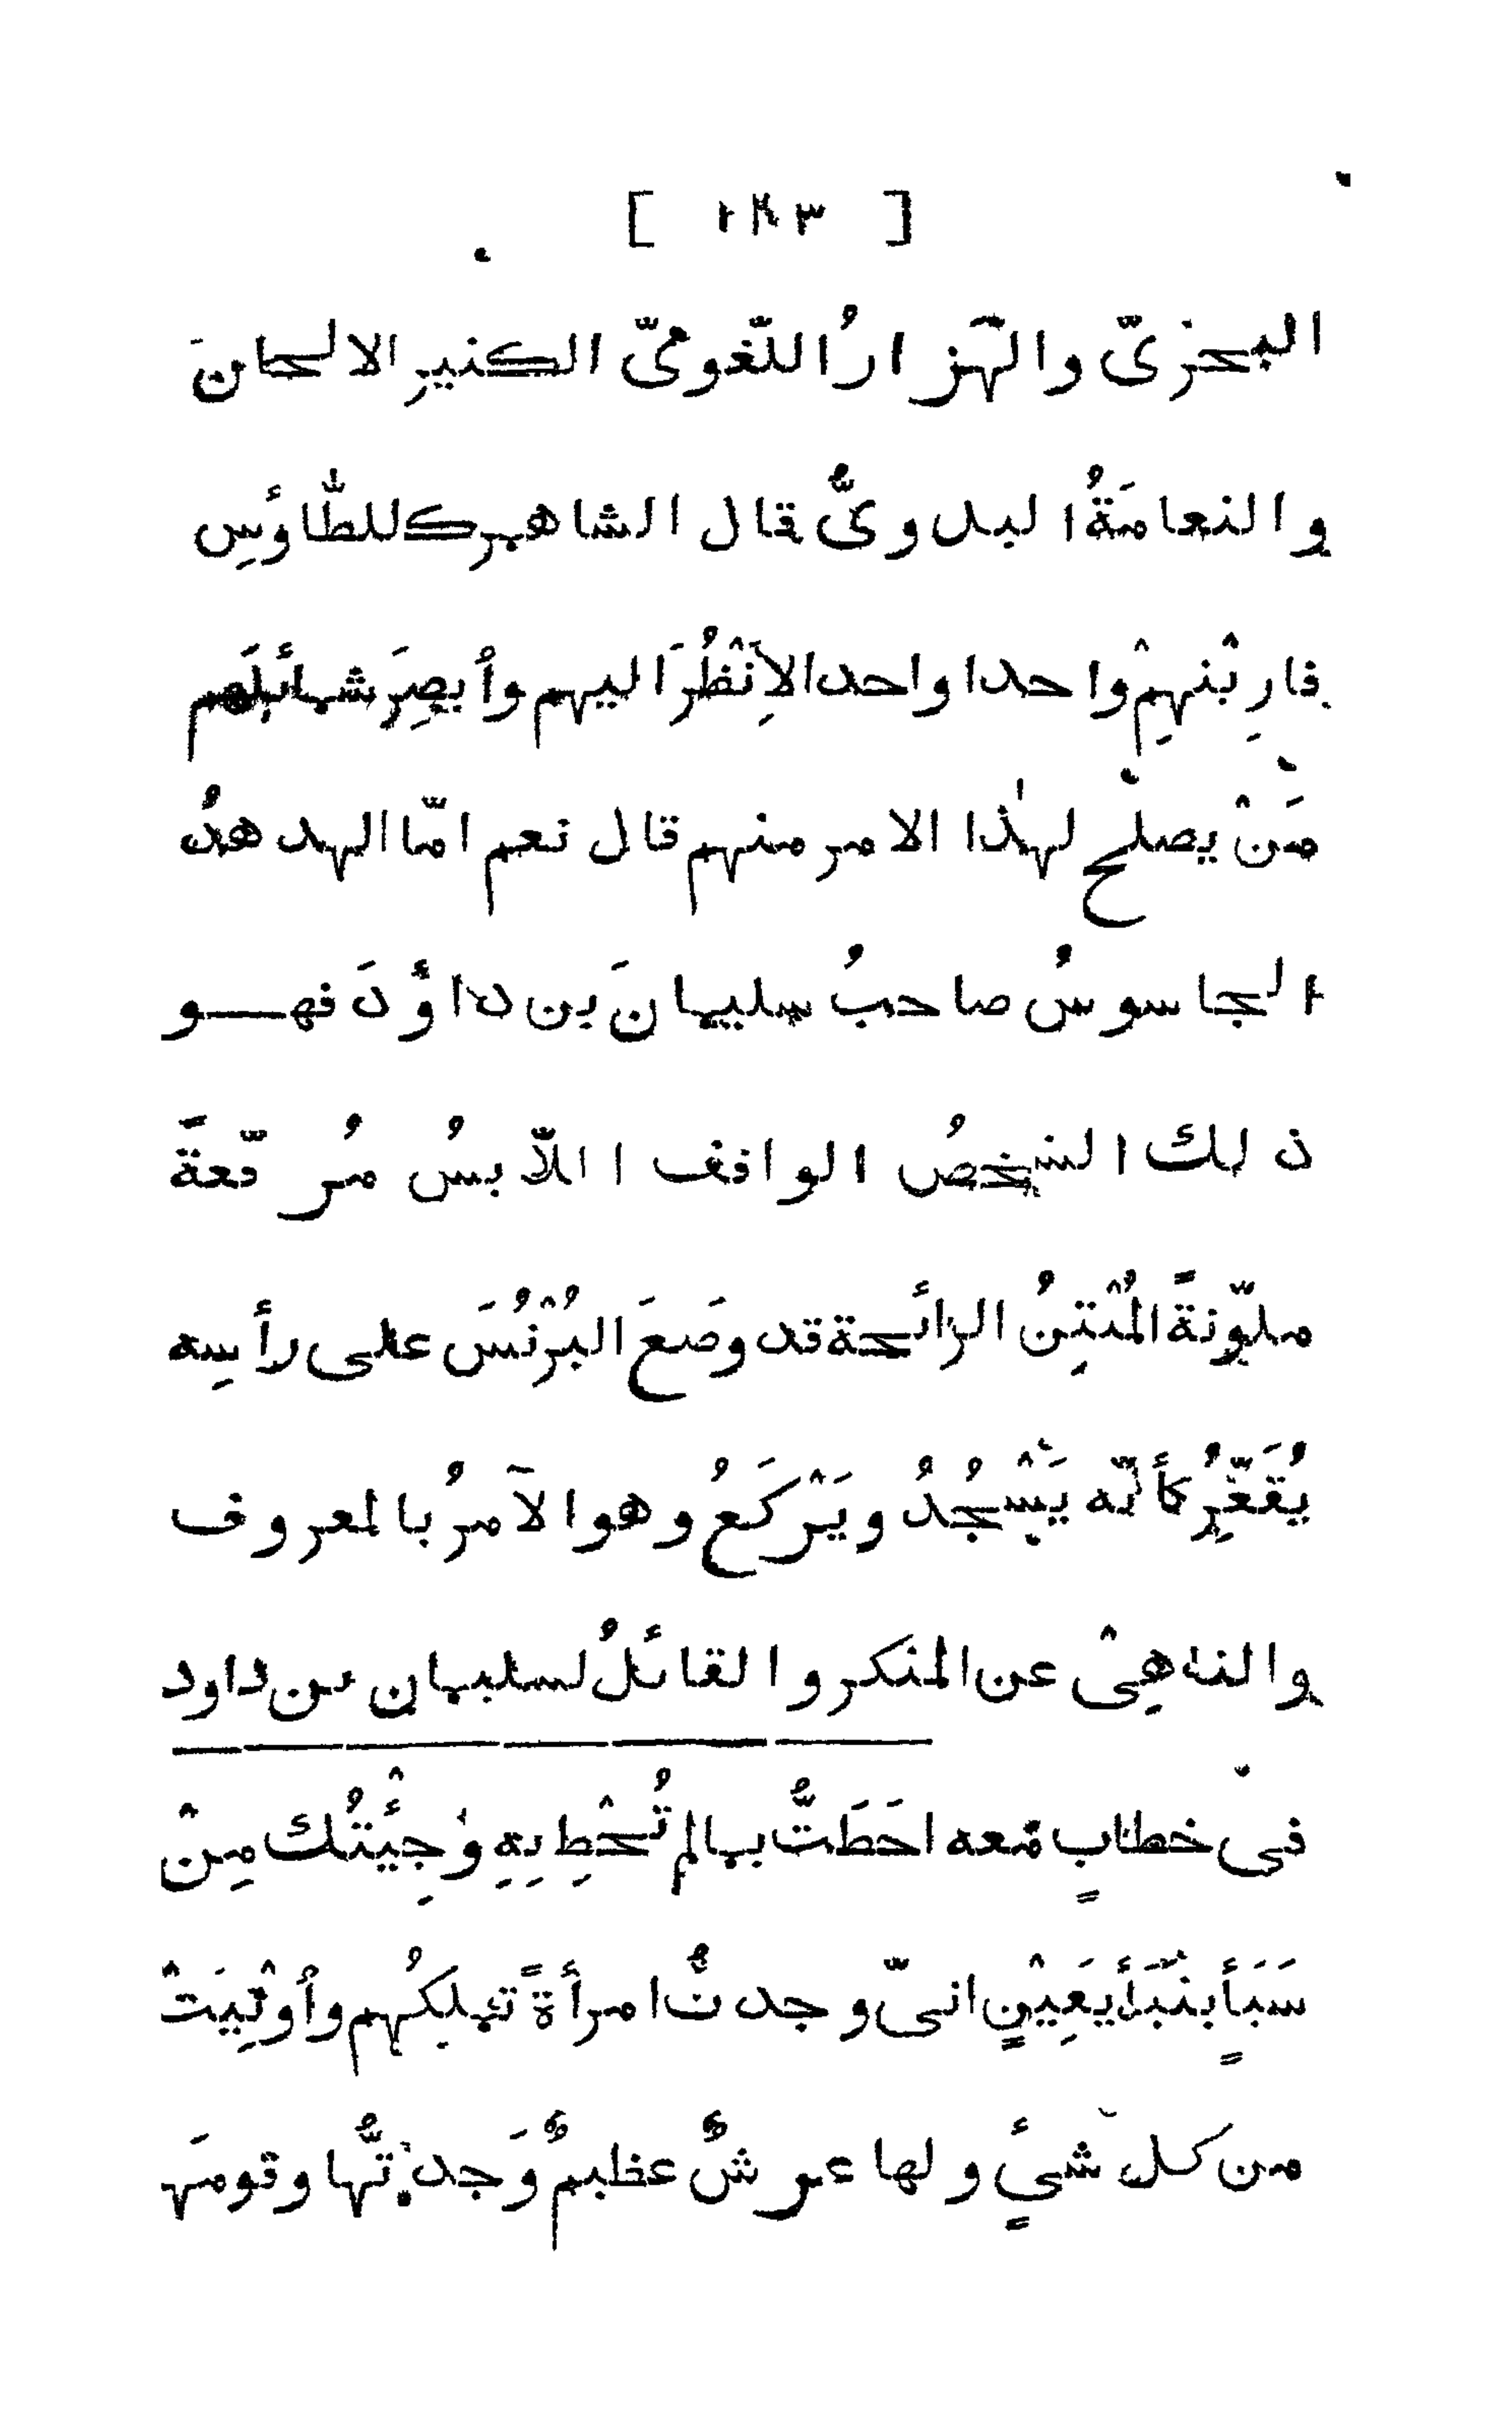 [ ١٤٣ ]
البحرىّ والهَزارُ اللّغوىّ الكثير الالحانَ
والنعامَةُ البدوىُّ قال الشاهرك للطّاوُسِ
فارِنْيهِمْ واحدا واحدا لاِنْظُرَ اليهم وأبصِرَ شمائلَهم
مَنْ يصلح لهٰذا الامر منهم قال نعم امّا الهدهدُ
الجاسوسُ صاحبُ سليمانَ بن داؤدَ فهو
ذلك الشخصُ الواقف اللّابسُ مُرقّعةً
ملوّنةً المُنْتِنُ الرائحة قد وضَعَ البُرْنُسَ على رأسِه
يُقَعِّرُ كأنّه يَسْجُدُ ويَرْكَعُ وهو الآمرُ بالمعروف
والنٰاهِىْ عن المنكر والقائلُ لسليمان بن داود
فى خطابٍ معه احَطَتُّ بمالم تُحْطِ بِهِ وَجِئْتُك مِنْ
سَبَأٍ بنَبَأٍ يَقِيْنٍ انىّ وجدتُّ امرأةً تملكُهم وأوْتِيَتْ
من كل شيءٍ ولها عرشٌ عظيمٌ وَجدتُّها وقومَها